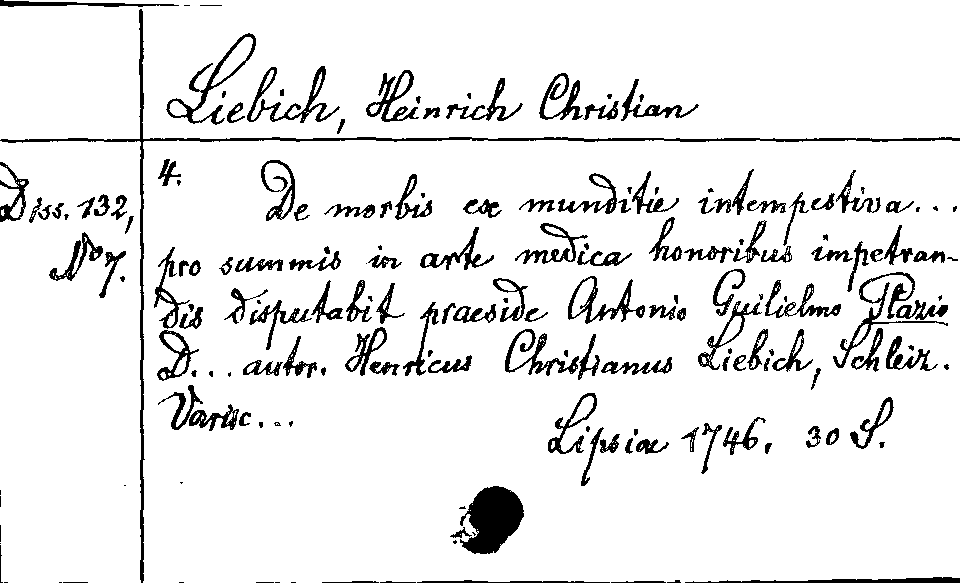 Liebich, Heinrich Christian
Diss. 132,
No 7.
4.
De morbis ex munditie intempestiva...
pro summis in arte medica honoribus impetran-
dis disputabit praeside Antonio Guilielmo Plazio
D... autor. Henricus Christianus Liebich, Schleiz.
Varisc...
Lipsiae 1746. 30 S.